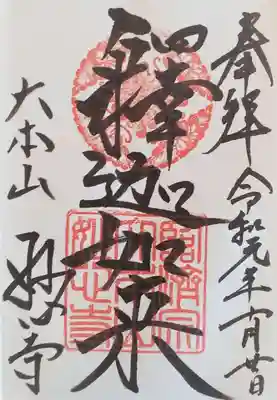 奉拝 令和元年十月廿日
釋迦如来
大本山 妙心寺